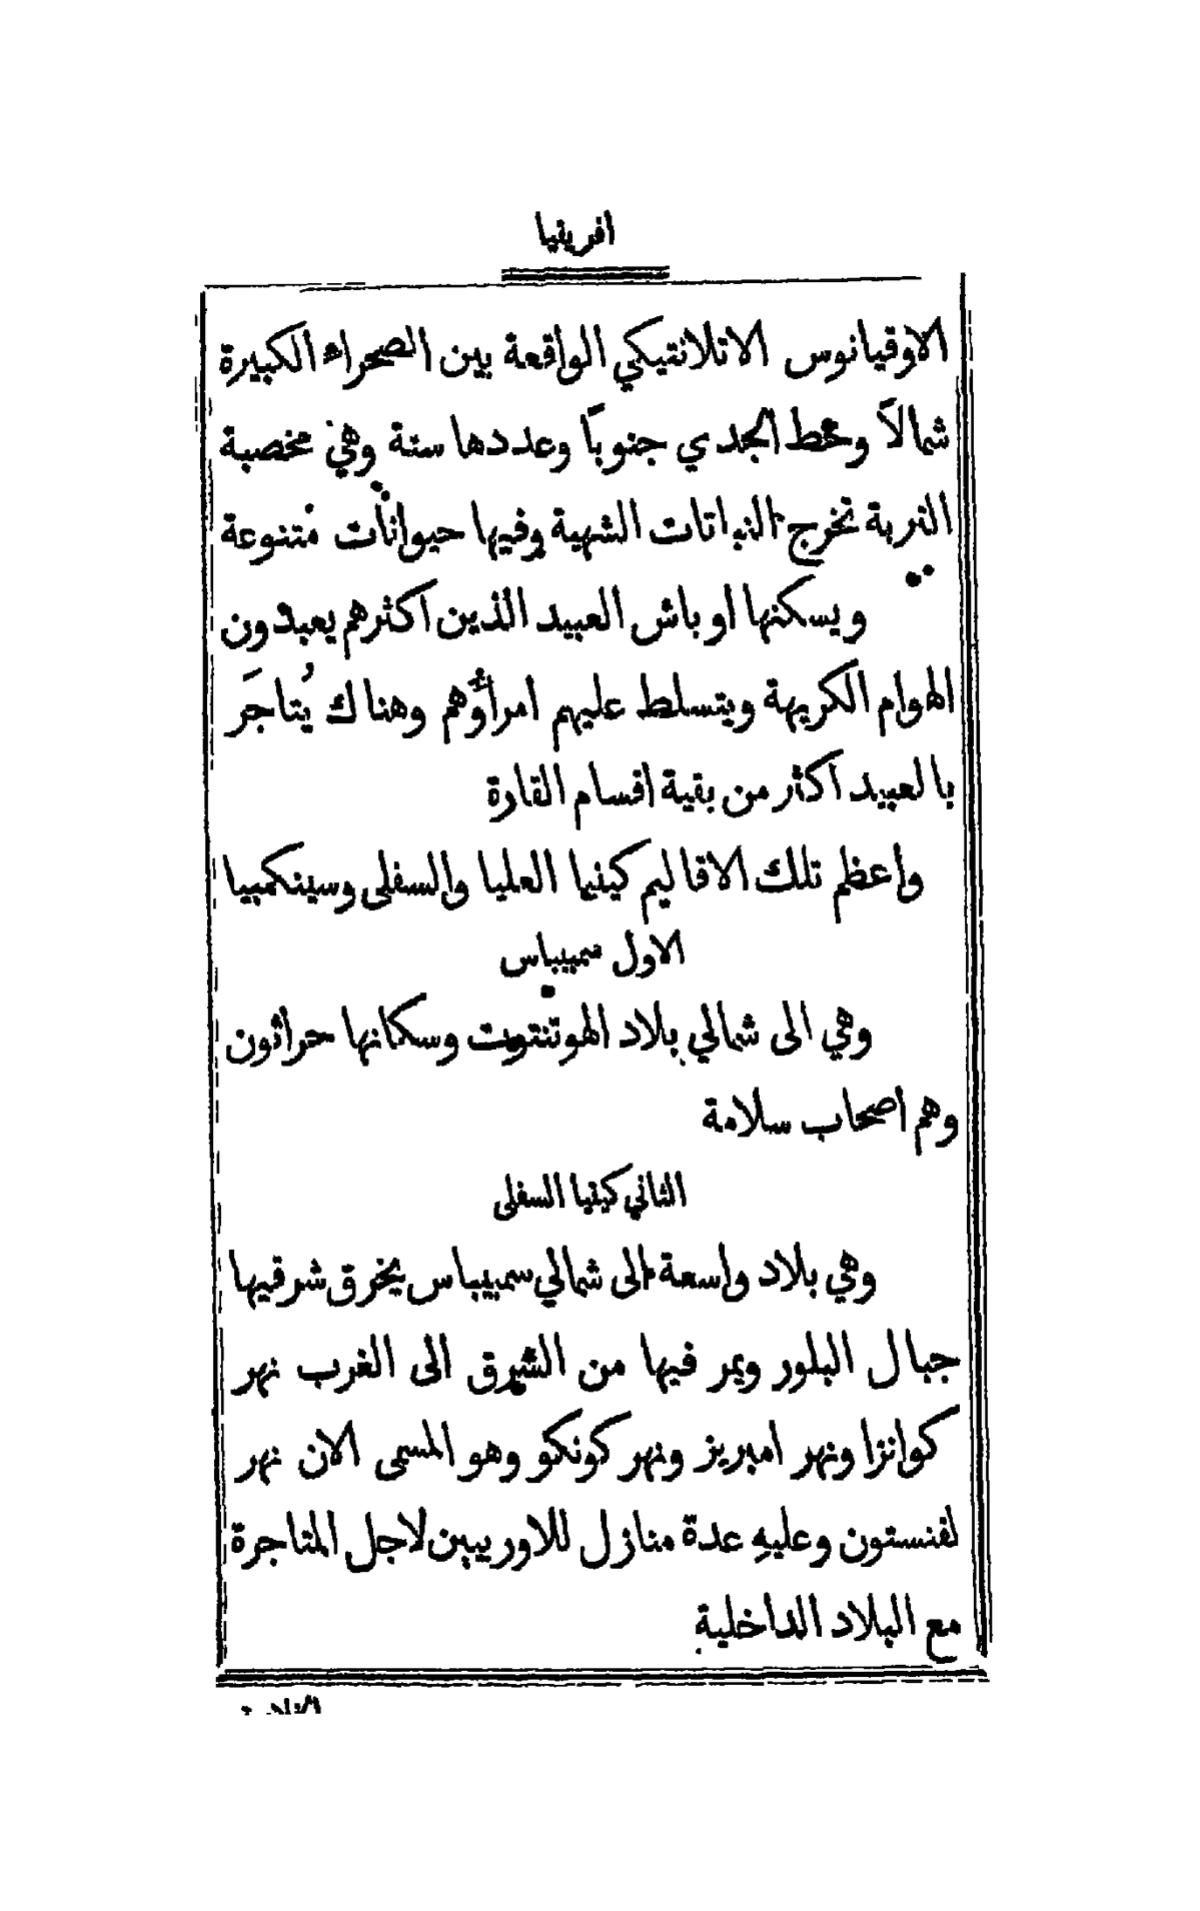 افريقيا
الاوقيانوس الاتلانتيكي الواقعة بين الصحراء الكبيرة
شمالاً وخط الجدي جنوباً وعددها ستة وهي مخصبة
التربة تخرج النباتات الشهية وفيها حيوانات متنوعة
ويسكنها اوباش العبيد الذين اكثرهم يعبدون
الهوام الكريهة ويتسلط عليهم امراؤهم وهناك يُتاجَر
بالعبيد اكثر من بقية اقسام القارة
واعظم تلك الاقاليم كينيا العليا والسفلى وسينكمبيا
الاول سمبيباس
وهي الى شمالي بلاد الهوتنتوت وسكانها حراثون
وهم اصحاب سلامة
الثاني كينيا السفلى
وهي بلاد واسعة الى شمالي سمبيباس يخرق شرقيها
جبال البلور ويمر فيها من الشرق الى الغرب نهر
كوانزا ونهر امبريز ونهر كونكو وهو المسمى الان نهر
لفنستون وعليهِ عدة منازل للاوربيين لاجل المتاجرة
مع البلاد الداخلية